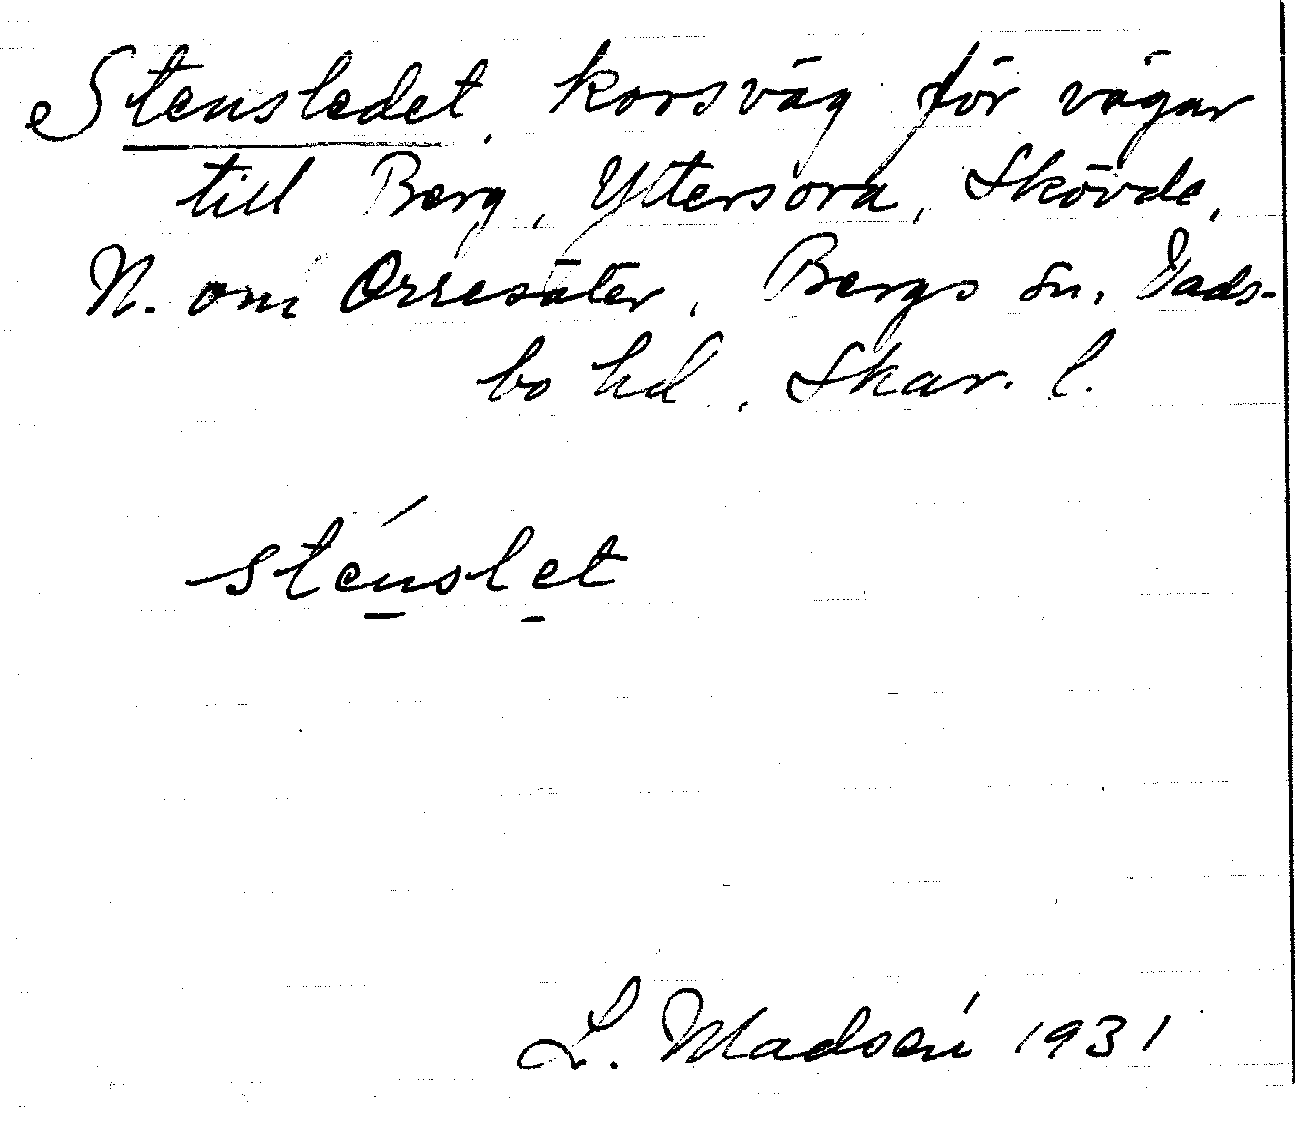 Stensledet, korsväg för vägar
till Berg, Yttersora, Skövde,
N. om Orresäter, Bergs sn, Vads-
bo hd, Skar. l.
sténslet
L. Madsén 1931